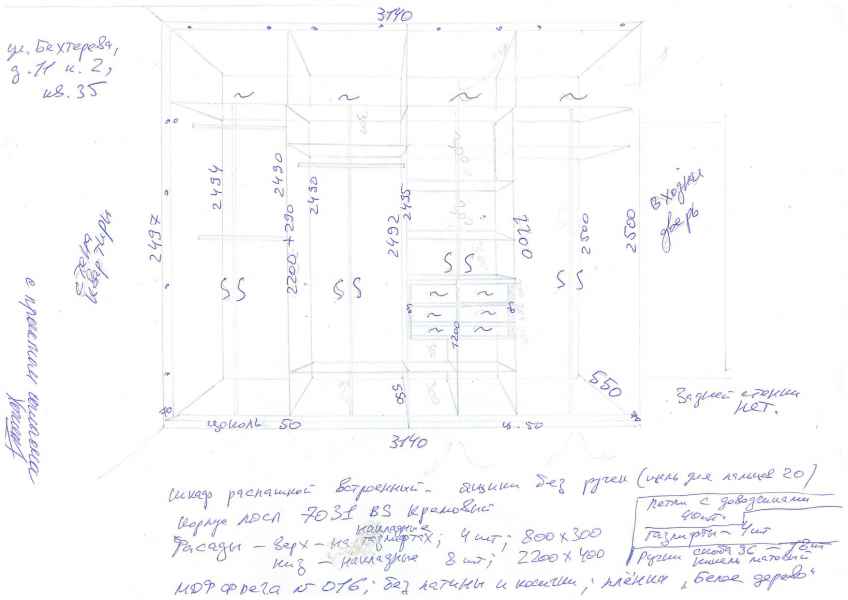 3140
ул. Бехтерева,
д. 11 к. 2,
кв. 35
~ ~ ~ ~
2497
2494
2490
2200 + 290
2490
2492
2495
2200
2500
2500
входн.
дверь
стена
квартиры
SS SS SS SS
~ ~
~ ~
~ ~
1200
550
550
Задней стенки
нет.
цоколь 50
ц. 50
3140
шкаф распашной встроенный - ящики без ручек (щель для пальцев 20)
корпус ЛДСП 7031 BS кремовый
накладные
Фасады - верх - на газлифтах; 4 шт; 800х300
низ - накладные 8 шт; 2200х400
МДФ фреза № 016; без патины и косички; плёнка "Белое дерево"
петли с доводчиками
40 шт.
Газлифты - 4 шт
Ручки скоба 96 - 12 шт
никель матовый